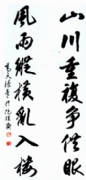 山川重複爭供眼
風雨縱橫亂入樓